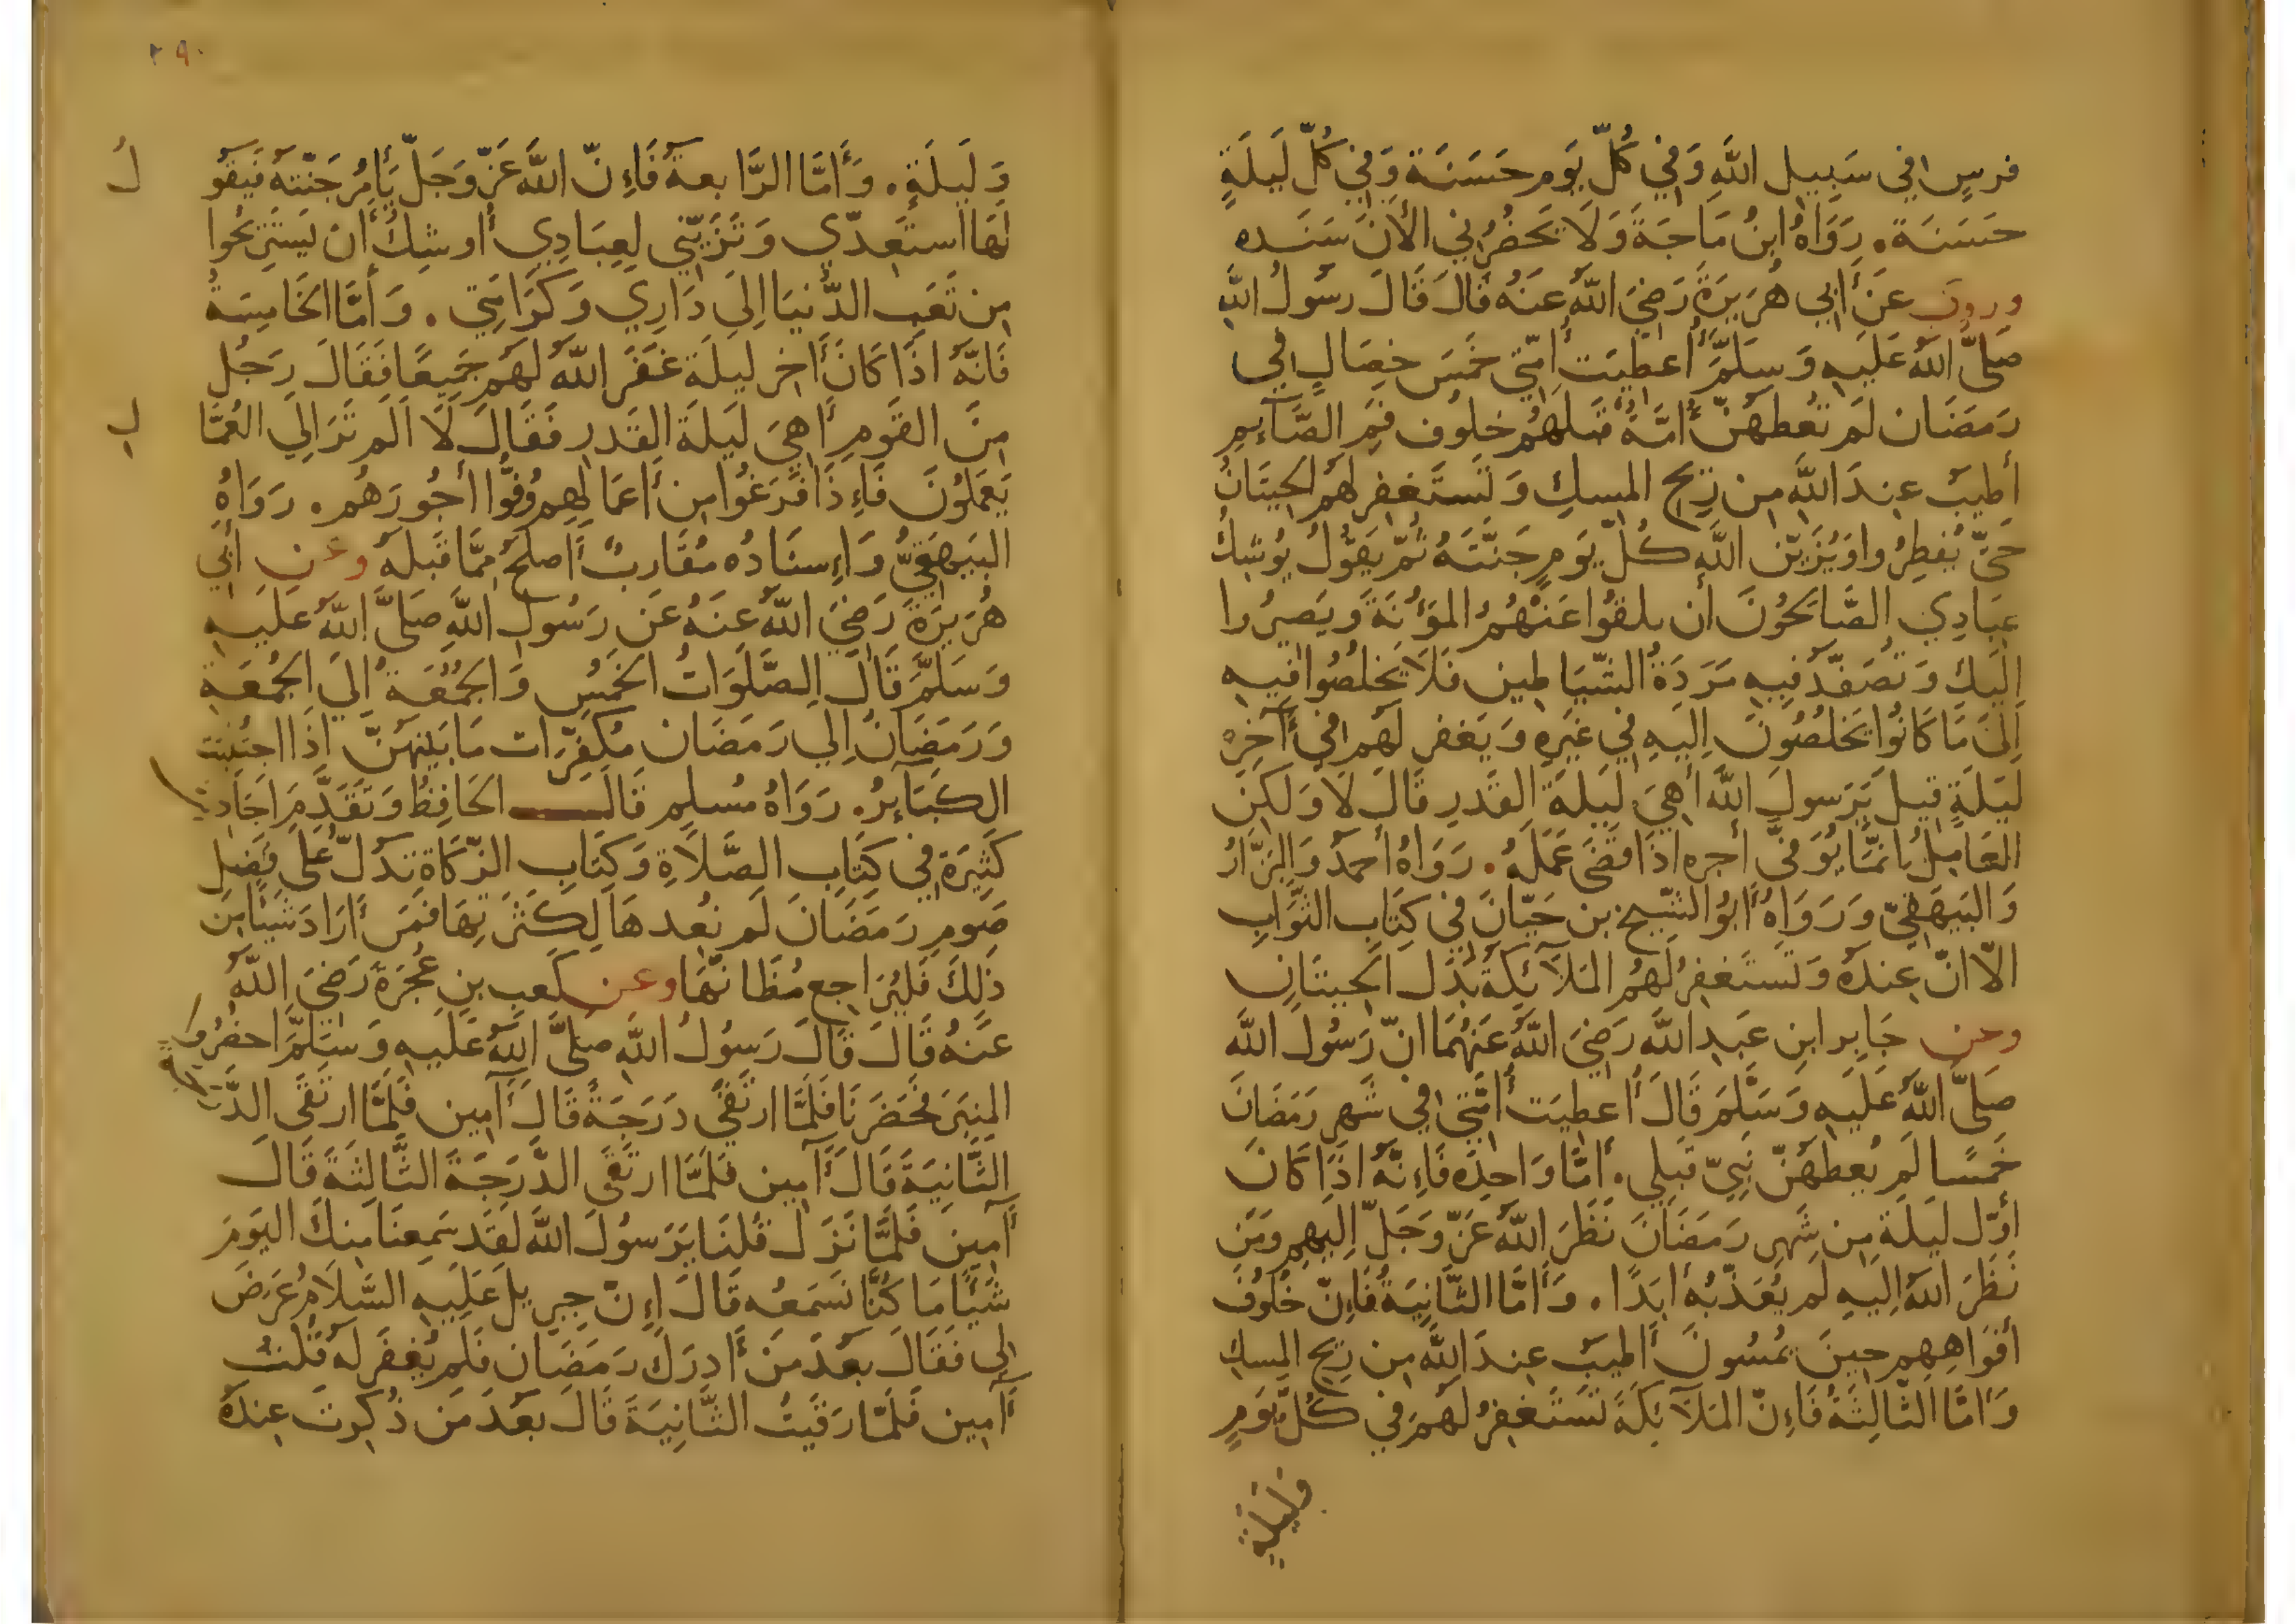 فرسٍ في سَبِيلِ اللَّهِ وَفِي كُلِّ يَومٍ حَسَنَة وَفِي كُلِّ لَيلَةٍ
حَسَنَة. رَوَاهُ ابنُ مَاجَةَ وَلَا يَحضُرُنِي الأَنَ سَنَده
وروي عَن أَبِي هُرَيرَةَ رَضِيَ اللَّهُ عَنهُ قَالَ قَالَ رسُولُ اللَّهِ
صَلَّى اللَّهُ عَلَيهِ وَسَلَّمَ أُعطِيَت أُمَّتِي خَمسَ خِصَالٍ فِي
رَمَضَان لَم تُعطَهُنَّ أُمَّةٌ قَبلَهُم خلُوف فَمِ الصَّآئِمِ
أَطيَبُ عِندَ اللَّهِ مِن رِيحِ المِسكِ وَتَستَغفِر لَهُم الحِيتَانُ
حَتَّى يُفطِرُوا وَيُزَيِّن اللَّهُ كُلَّ يَومٍ جَنَّتَهُ ثُمَّ يَقُولُ يُوشِكُ
عِبَادِي الصَّالِحُونَ أَن يلقُوا عَنهُمُ المَؤُنَةَ وَيَصِيرُوا
إِلَيكِ وَتُصَفَّدُ فِيهِ مَرَدَةُ الشَّيَاطِين فَلَا يَخلُصُوا فِيهِ
إِلَى مَا كَانُوا يَخلُصُونَ إِلَيهِ فِي غَيرِهِ وَيَغفِر لَهُم فِي أَخِرِ
لَيلَةٍ قِيلَ يَرَسولَ اللَّهِ أَهِيَ لَيلَةُ القَدرِ قَالَ لَا وَلَكِنَّ
العَامِلَ إِنَّمَا يُوَفَّى أَجره إِذَا قَضَى عَمَلَهُ. رَوَاهُ أَحمَدُ وَالبَزَّارُ
وَالبَيهَقِيّ وَرَوَاهُ أَبُو الشَّيخ بن حَيَّانَ فِي كِتَابِ الثَّوَابِ
الَّا انَّ عِندَهُ وَتَستَغفِرُ لَهُمُ المَلَآئِكَةُ بَدَل الحِيتَانِ
وعن جَابِر ابنِ عَبدِ اللَّه رَضِيَ اللَّهُ عَنهُمَا انَّ رَسُولَ اللَّه
صَلَّى اللَّهُ عَلَيهِ وَسَلَّمَ قَالَ أُعطِيَت أُمَّتِي فِي شَهرِ رَمَضَانَ
خَمسًا لَم يُعطَهُنَّ نَبِيٌّ قَبلِي. أَمَّا وَاحِدَه فَإِنَّهُ اذَا كَانَ
أَوَّلُ لَيلَةٍ مِن شَهرِ رَمَضَانَ نَظَرَ اللَّهُ عَزَّ وَجَلَّ إِلَيهِم وَمَن
نَظَرَ اللَّهُ إِلَيهِ لَم يُعَذِّبهُ أَبَدًا. وَأَمَّا الثَّانِيَةُ فَإِنَّ خُلُوفَ
أَفوَاهِهِم حِينَ يُمسُونَ أَطيَبُ عِندَ اللَّهِ مِن رِيحِ المِسكِ
وَأَمَّا الثَّالِثَةُ فَاءِنَّ المَلَآئِكَةَ تَستَغفِرُ لَهُم فِي كُلِّ يَومٍ
وَلَيلَةٍ
٢٩٠
وَلَيلَةٍ. وَأَمَّا الرَّابِعةُ فَاءِنَّ اللَّهَ عَزَّ وَجَلَّ يَأمُرُ جَنَّتهُ فَيَقُو لُ
لَهَا استَعِدِّي وَتَزَيَّنِي لِعِبَادِي أَوشِكُ أَن يَستَرِيحُوا
مِن تَعَبِ الدُّنيَا إِلَى دَارِي وَكَرَامَتِي. وَأَمَّا الخَامِسَةُ
فَانَّهُ اذَا كَانَ أَخِر لَيلَة غَفَرَ اللَّهُ لَهُم جَمِيعًا فَقَالَ رَجُل
مِنَ القَومِ أَهِيَ لَيلَةُ القَدرِ فَقَالَ لَا أَلَم تَرَ إِلَى العُمَّا لِ
يَعمَلُونَ فَاءِذَا فَرَغُوا مِن أَعمَالِهِم وُفُّوا أُجُورَهُم. رَوَاهُ
البَيهَقِيُّ وَاءِسنَادُه مُقَارِبٌ أَصلَحُ مِمَّا قَبلَهُ وعن أَبِي
هُرَيرَةَ رَضِيَ اللَّهُ عَنهُ عَن رَسُولِ اللَّهِ صَلَّى اللَّهُ عَلَيهِ
وَسَلَّمَ قَالَ الصَّلَوَاتُ الخَمسُ وَالجُمُعَةُ إِلَى الجُمُعَةِ
وَرَمَضَانُ إِلَى رَمَضَان مُكَفِّرَات مَا بَينَهُنَّ اذَا اجتُنِبَت
الكَبَآئِرُ. رَوَاهُ مُسلِم قَالَ الحَافِظُ وَتَقَدَّمَ احَادِيث
كَثِيرَة فِي كِتَابِ الصَّلَاةِ وَكِتَابِ الزَّكَاة تَدُلُّ عَلَى فَضلِ
صَومِ رَمَضَانَ لَم نُعِدهَا لِكَثرَتِهَا فَمَن أَرَادَ شَيئًا مِن
ذَلِكَ فَليُرَاجِع مُظَانَّهَا وعن كَعبِ بنِ عُجرَةَ رَضِيَ اللَّهُ
عَنهُ قَالَ قَالَ رَسُولُ اللَّهِ صَلَّى اللَّهُ عَلَيهِ وَسَلَّمَ احضُرُوا
المِنبَرَ فَحَضَرنَا فَلَمَّا ارتَقَى دَرَجَةً قَالَ أَمِين فَلَمَّا ارتَقَى الدَّرَجَةَ
الثَّانِيَةَ قَالَ أَمِين فَلَمَّا ارتَقَى الدَّرَجَةَ الثَّالِثَةَ قَالَ
أَمِين فَلَمَّا نَزَلَ قُلنَا يَرَسُولَ اللَّهِ لَقَد سَمِعنَا مِنكَ اليَومَ
شَيئًا مَا كُنَّا نَسمَعُه قَالَ إِنَّ جِبرِيلَ عَلَيهِ السَّلَامُ عَرَضَ
لِي فَقَالَ بعُدَ مَن أَدرَكَ رَمَضَان فَلَم يُغفَر لَهُ قُلتُ
أَمِين فَلَمَّا رَقَيتُ الثَّانِيَةَ قَالَ بعُدَ مَن ذُكِرتَ عِندَهُ